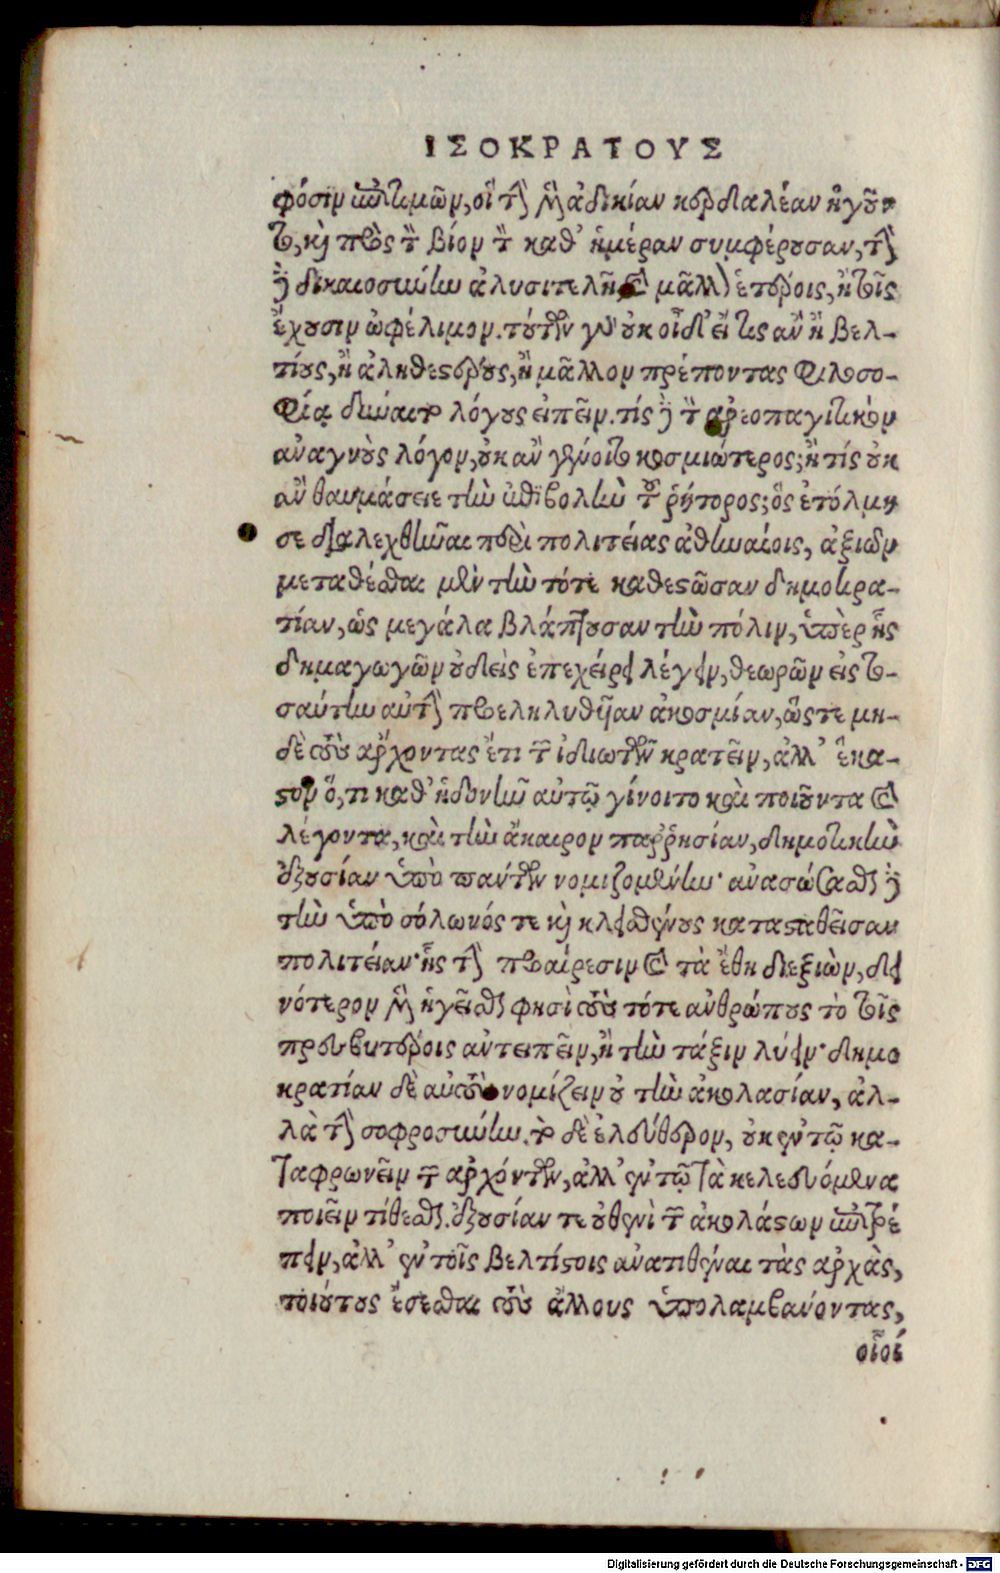 ΙΣΟΚΡΑΤΟΥΣ
φόσιν ἐπιτιμῶν, οἳ τὴν μὲν ἀδικίαν κερδαλέαν ἡγοῦν-
ται, καὶ πρὸς τὸν βίον τὸν καθ' ἡμέραν συμφέρουσαν, τὴν
δὲ δικαιοσύνην ἀλυσιτελῆ καὶ μᾶλλον ἑτέροις, ἢ τοῖς
ἔχουσιν ὠφέλιμον. τούτων γὰρ οὐκ οἶδ' εἴ τις ἂν ἢ βελ-
τίους, ἢ ἀληθεστέρους, ἢ μᾶλλον πρέποντας φιλοσο-
φίᾳ δύναιτο λόγους εἰπεῖν. τίς δὲ τὸν ἀρεοπαγιτικὸν
ἀναγνοὺς λόγον, οὐκ ἂν γένοιτο κοσμιώτερος; ἢ τίς οὐκ
ἂν θαυμάσειε τὴν ἐπιβολὴν τοῦ ῥήτορος; ὃς ἐτόλμη
σε διαλεχθῆναι περὶ πολιτείας ἀθηναίοις, ἀξιῶν
μεταθέσθαι μὲν τὴν τότε καθεστῶσαν δημοκρα-
τίαν, ὡς μεγάλα βλάπτουσαν τὴν πόλιν, ὑπὲρ ἧς
δημαγωγῶν οὐδεὶς ἐπεχείρει λέγειν, θεωρῶν εἰς το-
σαύτην αὐτὴν προεληλυθῆαν ἀκοσμίαν, ὥστε μη-
δὲ τοὺς ἄρχοντας ἔτι τῶν ἰδιωτῶν κρατεῖν, ἀλλ' ἕκα-
στον ὅ,τι καθ' ἡδονὴν αὐτῷ γίνοιτο καὶ ποιοῦντα καὶ
λέγοντα, καὶ τὴν ἄκαιρον παῤῥησίαν, δημοτικὴν
ἐξουσίαν ὑπὸ πάντων νομιζομένην· ἀνασώσασθαι δὲ
τὴν ὑπὸ σόλωνός τε καὶ κλεισθένους κατασταθεῖσαν
πολιτείαν· ἧς τὴν προαίρεσιν καὶ τὰ ἔθη διεξιὼν, δει
νότερον μὲν ἡγεῖσθαι φησὶ τοὺς τότε ἀνθρώπους τὸ τοῖς
πρεσβυτέροις ἀντειπεῖν, ἢ τὴν τάξιν λύειν· δημο
κρατίαν δὲ αὐτοὺς νομίζειν οὐ τὴν ἀκολασίαν, ἀλ-
λὰ τὴν σοφροσύνην. τὸ δὲ ἐλεύθερον, οὐκ ἐν τῷ κα-
ταφρωνεῖν τῶν ἀρχόντων, ἀλλ' ἐν τῷ τὰ κελευόμενα
ποιεῖν τίθεσθαι. ἐξουσίαν τε οὐθενὶ τῶν ἀκολάστων ἐπιτρέ
πειν, ἀλλ' ἐν τοῖς βελτίστοις ἀνατιθέναι τὰς ἀρχὰς,
τοιούτους ἔσεσθαι τοὺς ἄλλους ὑπολαμβάνοντας,
οἷοί
Digitalisierung gefördert durch die Deutsche Forschungsgemeinschaft - DFG